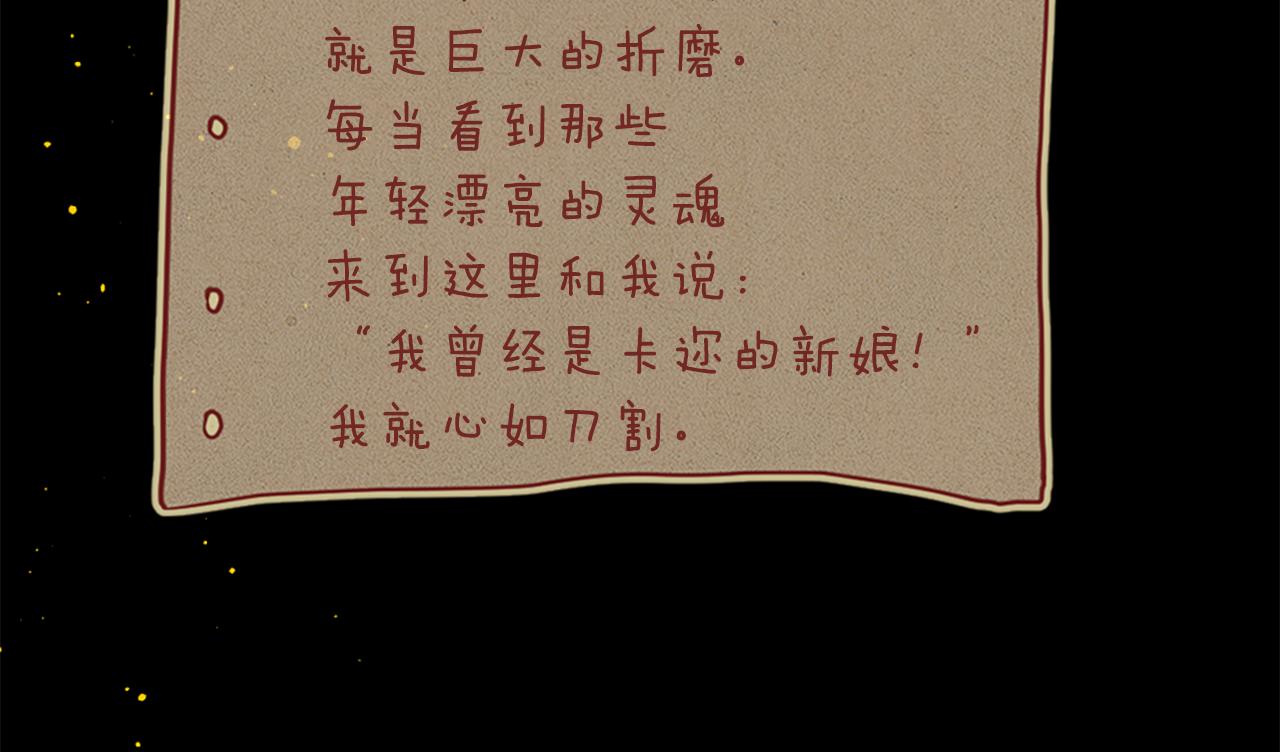 就是巨大的折磨。
每当看到那些
年轻漂亮的灵魂
来到这里和我说：
“我曾经是卡迩的新娘！”
我就心如刀割。